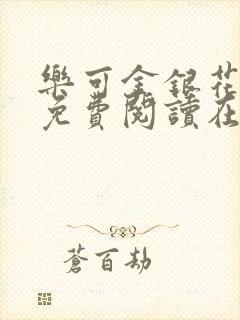 樂可金銀花
免費閱讀在
蒼百劫